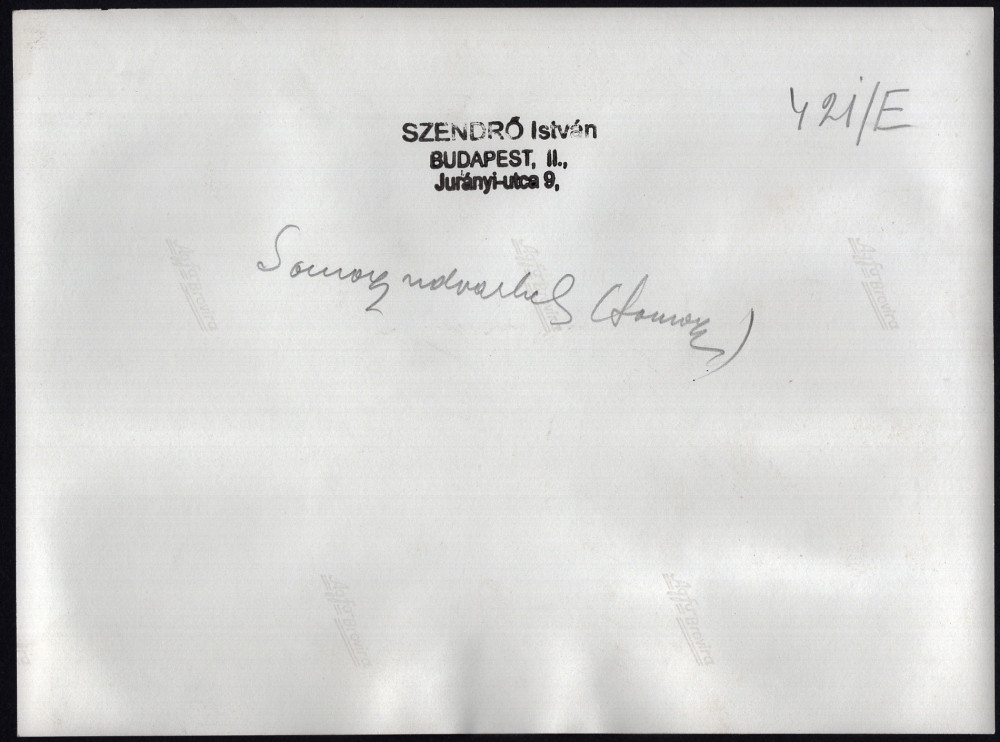 421/E
SZENDRŐ István
BUDAPEST, II.,
Jurányi-utca 9,
Somogyudvarhely (Somogy)
Agfa Brovira
Agfa Brovira
Agfa Brovira
Agfa Brovira
Agfa Brovira